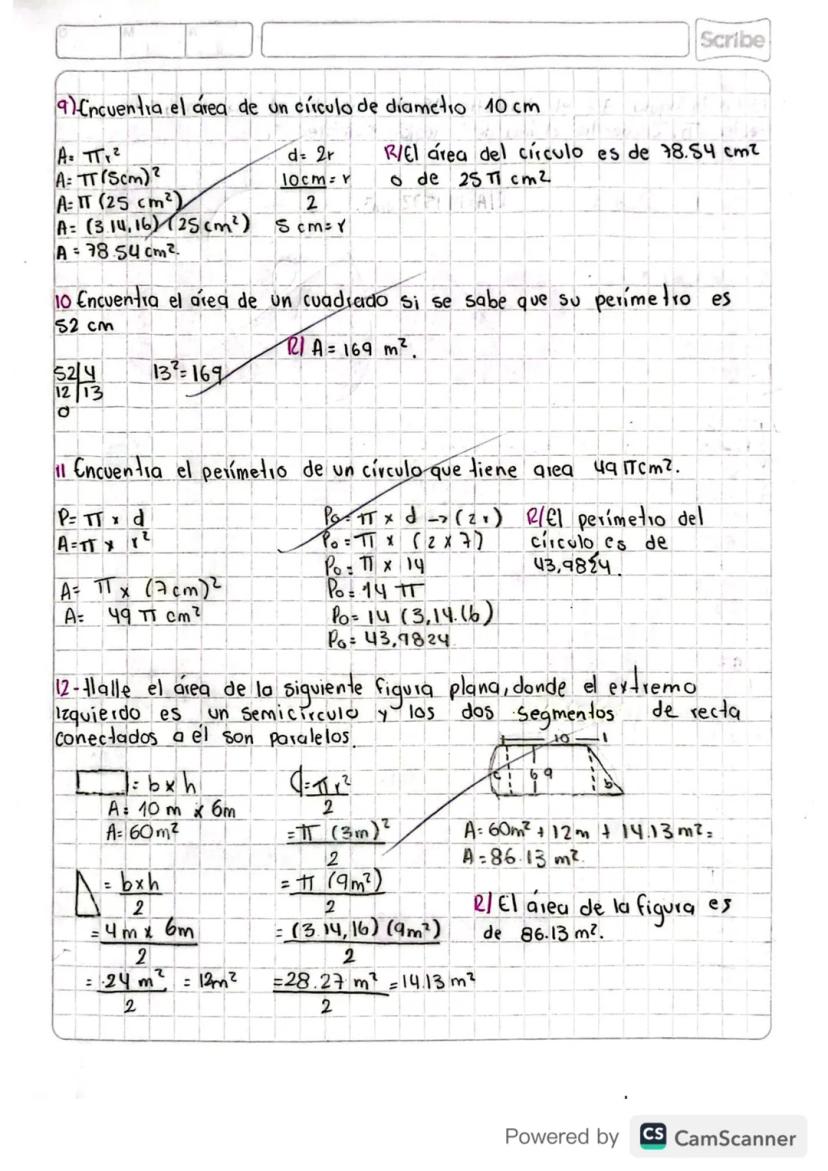 Scribe
9) Encuentra el área de un círculo de diametro 10 cm
A= πr²
A= π(5cm)²
A= π (25 cm²)
A= (3.14,16) (25 cm²)
A = 78.54 cm².
d= 2r
10cm = r
2
5 cm= r
R/ El área del círculo es de 78.54 cm²
o de 25 π cm²
10 Encuentra el área de un cuadrado si se sabe que su perímetro es
52 cm
52 4
12 13
0
13²= 169
R/ A = 169 m².
11 Encuentra el perímetro de un círculo que tiene area 49 π cm².
P= π x d
A= π x r²
A= π x (7 cm)²
A= 49 π cm²
Po = π x d -> (2r)
Po = π x (2 x 7)
Po = π x 14
Po = 14 π
Po = 14 (3,14.16)
Po = 43,9824
R/ El perímetro del
círculo es de
43,9824.
12- Halle el área de la siguiente figura plana, donde el extremo
izquierdo es un semicírculo y los dos segmentos de recta
conectados a él son paralelos.
10
c 6 a b
= b x h
A= 10 m x 6m
A= 60m²
= b x h
2
= 4m x 6m
2
= 24 m² = 12m²
2
= πr²
2
= π (3m)²
2
= π (9m²)
2
= (3.14,16) (9m²)
2
= 28.27 m² = 14.13 m²
2
A= 60m² + 12m + 14.13 m² =
A = 86.13 m².
R/ El área de la figura es
de 86.13 m².
Powered by CS CamScanner